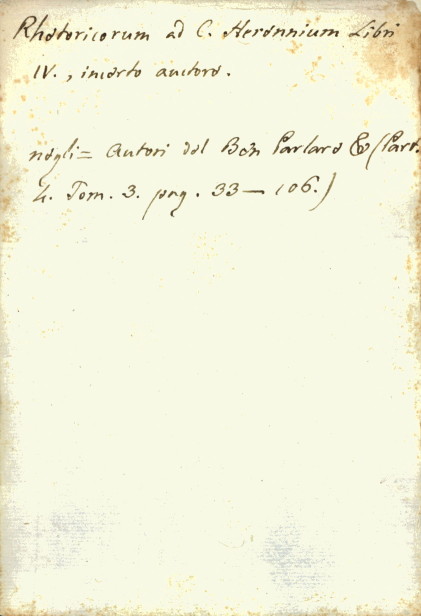 Rhetoricorum ad C. Herennium Libri
IV., incerto auctore.
negli = Autori del Ben Parlare & (Part.
4. Tom. 3. pag. 33 — 106.)